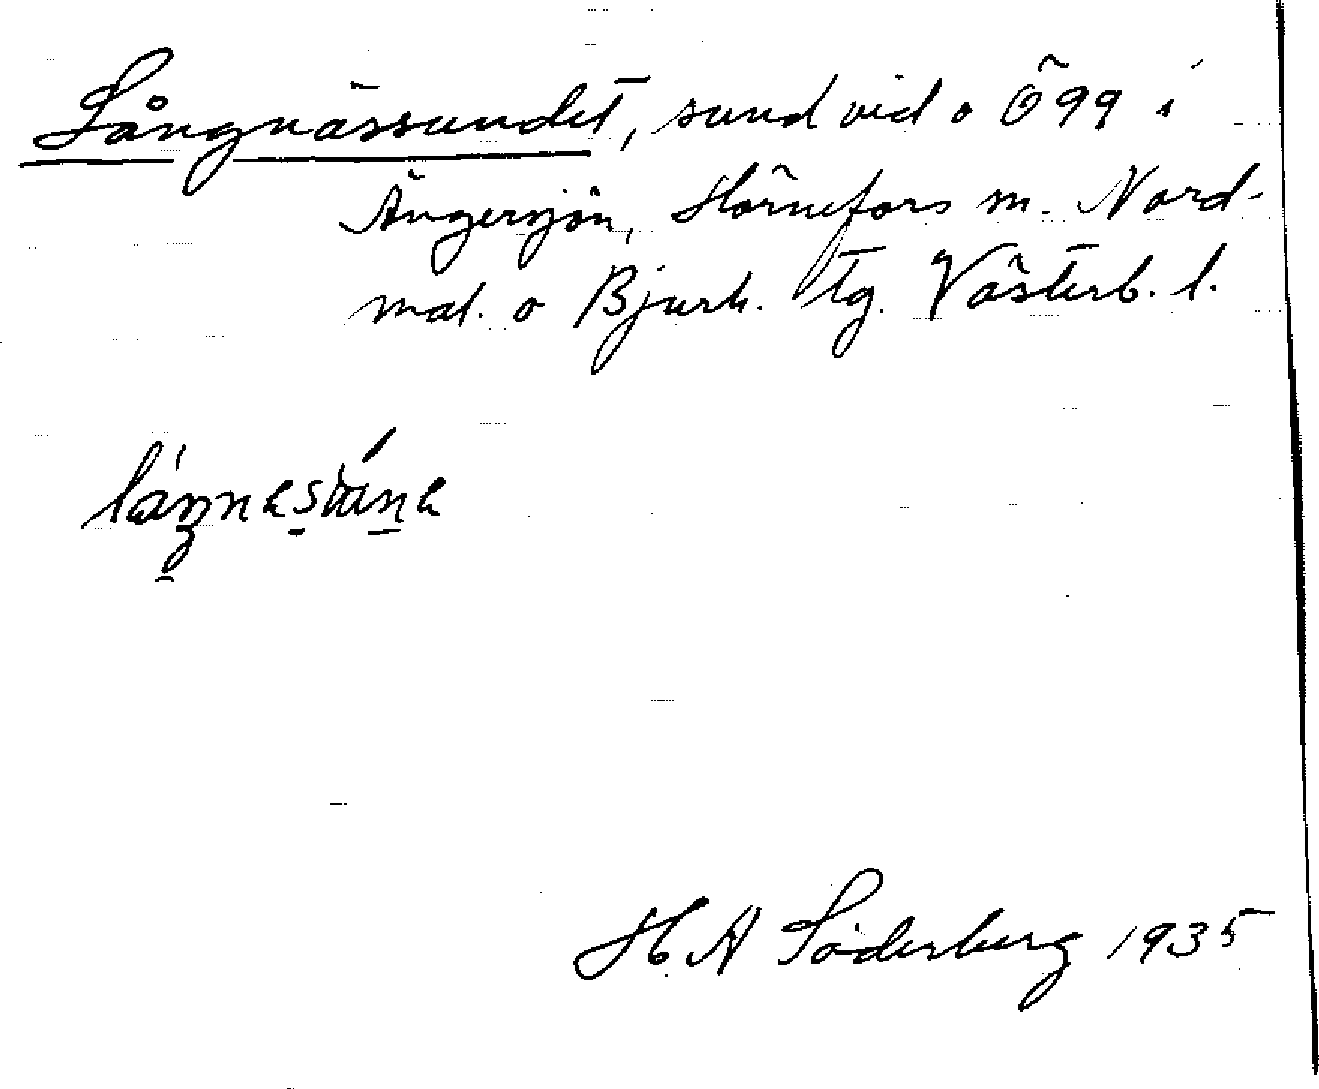 Långnässundet, sund vid o Ö 99 i
Ängersjön, Hörnefors m. Nord-
mal. o Bjurh. tg. Västerb. l.
H A Söderberg 1935